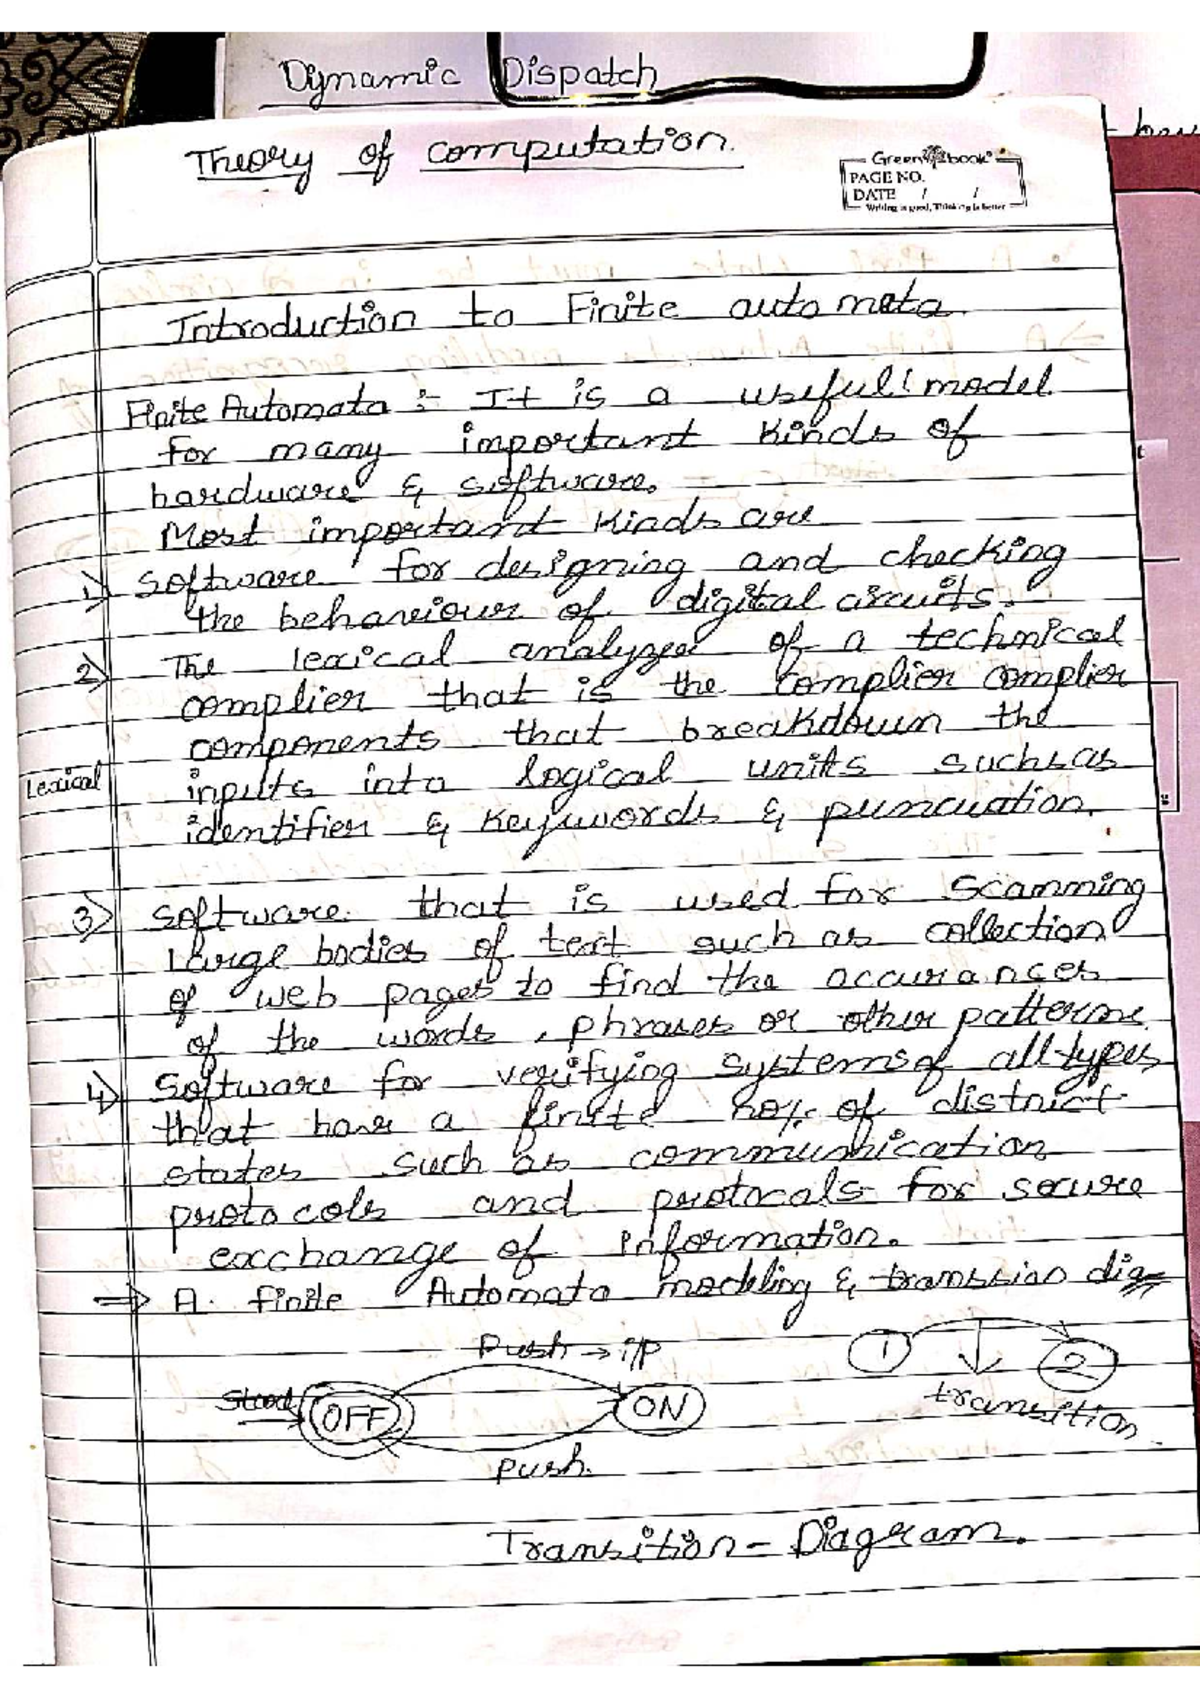 Dynamic Dispatch
Theory of computation.
Green book
PAGE NO.
DATE / /
Writing is good, Thinking is better
Introduction to Finite autometa
Finite Automata :- It is a useful model
for many important kinds of
hardware & software.
Most important kinds are
1) Software for designing and checking
the behaviour of digital circuits.
2) The lexical analyzer of a technical
complier that is the complier complier
components that breakdown the
Lexical
inputs into logical units such as
identifier & keywords & puncuation.
3) Software that is used for scanning
large bodies of text such as collection
of web pages to find the accurances
of the words, phrases or other patterns
4) Software for verifying systems of all types
that have a finite no. of district
states such as communication
protocols and protocals for secure
exchange of information.
⇒ A. finite Automata modeling & transsion dia
Push → i/p
1 2
Start OFF ON
transition
Push.
Transition - Diagram.